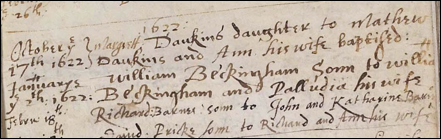 26th
1622:
October ye } Margrett Dawkins daughter to Mathew
17th 1622 } Dawkins and Ann his wife baptised:
January ye William Beckingham Sonn to Willia
5th 1622: Beckingham and Palludia his wife
Febrew 18th Richard Barnes sonn to John and Katharine Barn
David Pricke sonn to Richard and Ann his wife